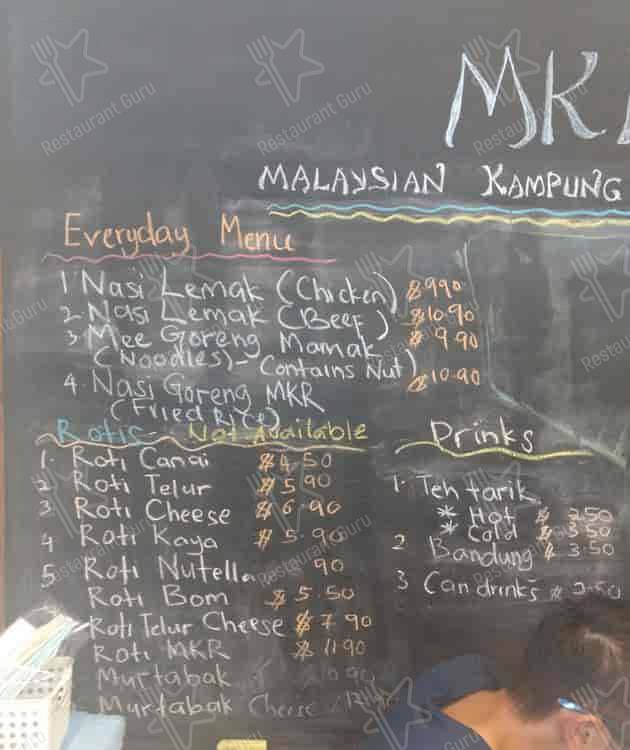 MK
MALAYSIAN KAMPUNG
Everyday Menu
1 Nasi Lemak (Chicken) $9.90
2. Nasi Lemak (Beef) $10.90
3. Mee Goreng Mamak $9.90
(Noodles) - Contains Nut)
4. Nasi Goreng MKR $10.90
(Fried Rice)
Rotis - Not Available
1. Roti Canai $4.50
2 Roti Telur $5.90
3 Roti Cheese $6.90
4 Roti Kaya $5.90
5 Roti Nutella 90
Roti Bom $5.50
Roti Telur Cheese $7.90
Roti MKR $11.90
Murtabak
Murtabak Cheese
Drinks
1. Teh tarik
* Hot $ 3.50
* Cold $ 3.50
2 Bandung $ 3.50
3 Can drinks $
Restaurant Guru